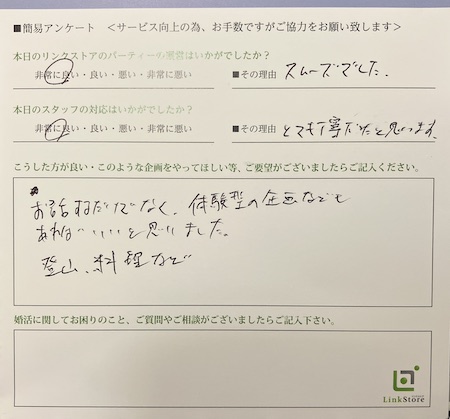 ■簡易アンケート　＜サービス向上の為、お手数ですがご協力をお願い致します＞
本日のリンクストアのパーティーの運営はいかがでしたか？
非常に良い・良い・悪い・非常に悪い　■その理由　スムーズでした。
本日のスタッフの対応はいかがでしたか？
非常に良い・良い・悪い・非常に悪い　■その理由　とても丁寧だったと思います。
こうした方が良い・このような企画をやってほしい等、ご要望がございましたらご記入ください。
お話するだけでなく、体験型の企画なども
あればいいと思いました。
登山、料理など
婚活に関してお困りのこと、ご質問やご相談がございましたらご記入下さい。
LinkStore